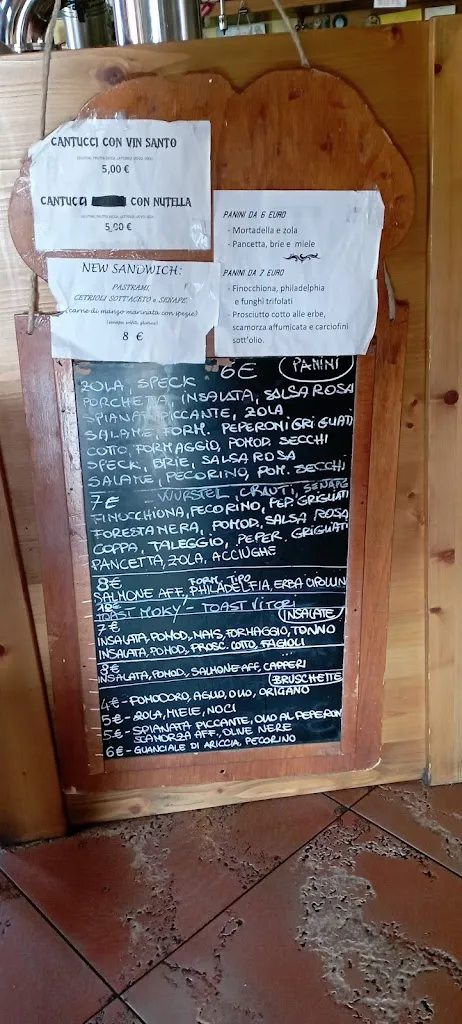 CANTUCCI CON VIN SANTO
5,00 €
CANTUCCI CON NUTELLA
5,00 €
NEW SANDWICH:
PASTRAMI,
CETRIOLI SOTTACETO e SENAPE
(carne di manzo marinata con spezie)
8 €
PANINI DA 6 EURO
- Mortadella e zola
- Pancetta, brie e miele
PANINI DA 7 EURO
- Finocchiona, philadelphia
e funghi trifolati
- Prosciutto cotto alle erbe,
scamorza affumicata e carciofini
sott'olio.
6€ PANINI
ZOLA, SPECK
PORCHETTA, INSALATA, SALSA ROSA
SPIANATA PICCANTE, ZOLA
SALAME, FORM. PEPERONI GRIGLIATI
COTTO, FORMAGGIO, POMOD. SECCHI
SPECK, BRIE, SALSA ROSA
SALAME, PECORINO, POM. SECCHI
7€ - WURSTEL, CRAUTI, SENAPE
FINOCCHIONA, PECORINO, PEP. GRIGLIATI
FORESTA NERA, POMOD, SALSA ROSA
COPPA, TALEGGIO, PEPER. GRIGLIATI
PANCETTA, ZOLA, ACCIUGHE
8€ FORM. TIPO
SALMONE AFF, PHILADELFIA, ERBA CIPOLLIN
TOAST MOKY - TOAST VITORI
7€ INSALATE
INSALATA, POMOD, MAIS, FORMAGGIO, TONNO
INSALATA, POMOD, PROSC. COTTO, FAGIOLI
8€
INSALATA, POMOD, SALMONE AFF, CAPPERI
BRUSCHETTE
4€ - POMODORO, AGLIO, OLIO, ORIGANO
5€ - ZOLA, MIELE, NOCI
5€ - SPIANATA PICCANTE, OLIO AL PEPERON
5€ - SCAMORZA AFF., OLIVE NERE
6€ - GUANCIALE DI ARICCIA, PECORINO